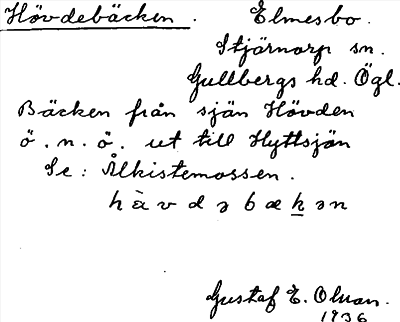 Hövdebäcken. Elmesbo.
Stjärnorp sn.
Gullbergs hd. Ögl.
Bäcken från sjön Hövden
ö. n. ö. ut till Hyttsjön
Se: Ålkistemossen.
h ὰ v d ə b æ k ə n
Gustaf E. Olsson.
1936